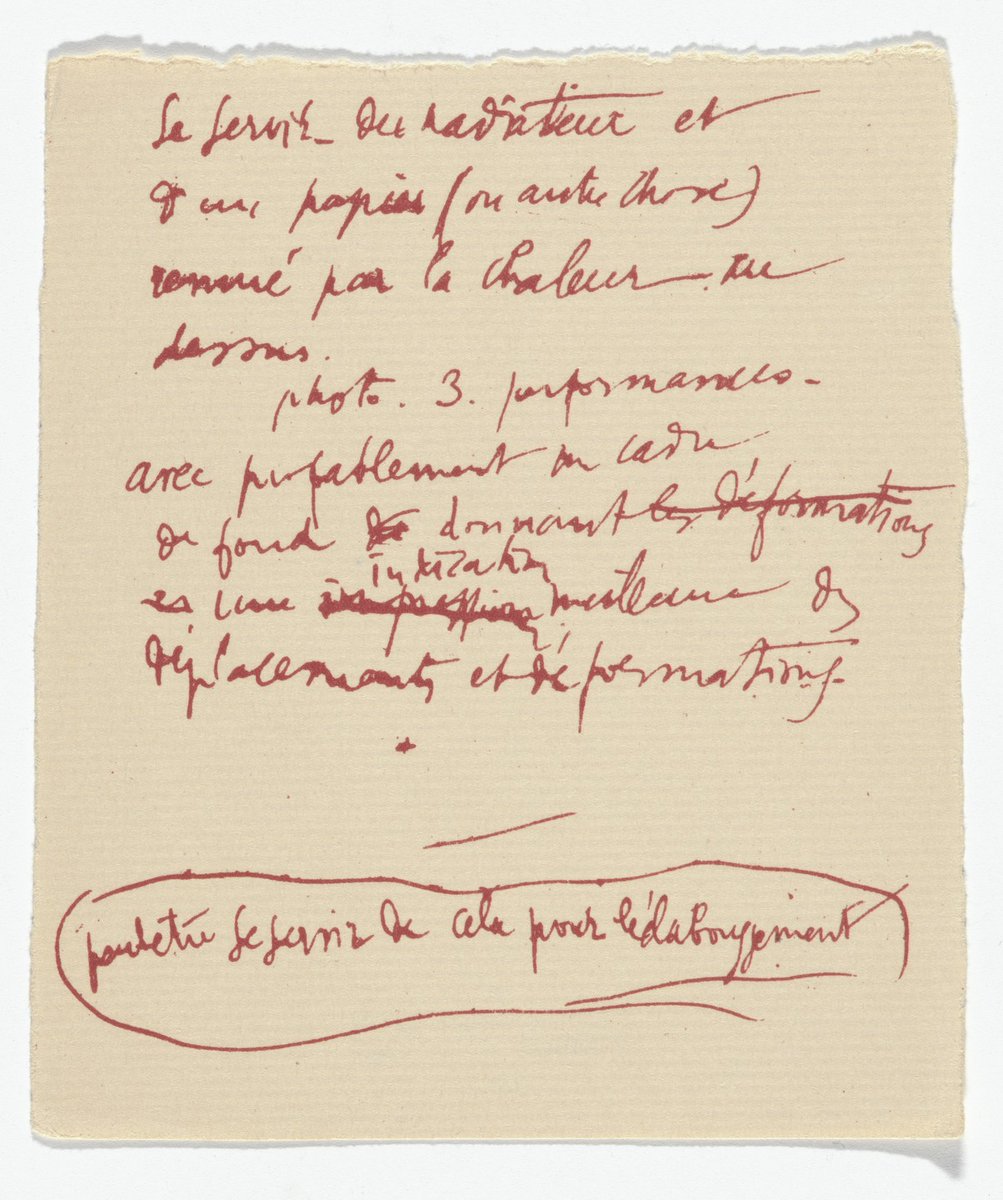 Se servir du radiateur et
d'un papier (ou autre chose)
remué par la chaleur au
dessus.
photo. 3. performances -
avec probablement un cadre
de fond donnant les déformations
indication
une impression meilleure des
déplacements et déformations.
peut être se servir de cela pour l'éclabougement